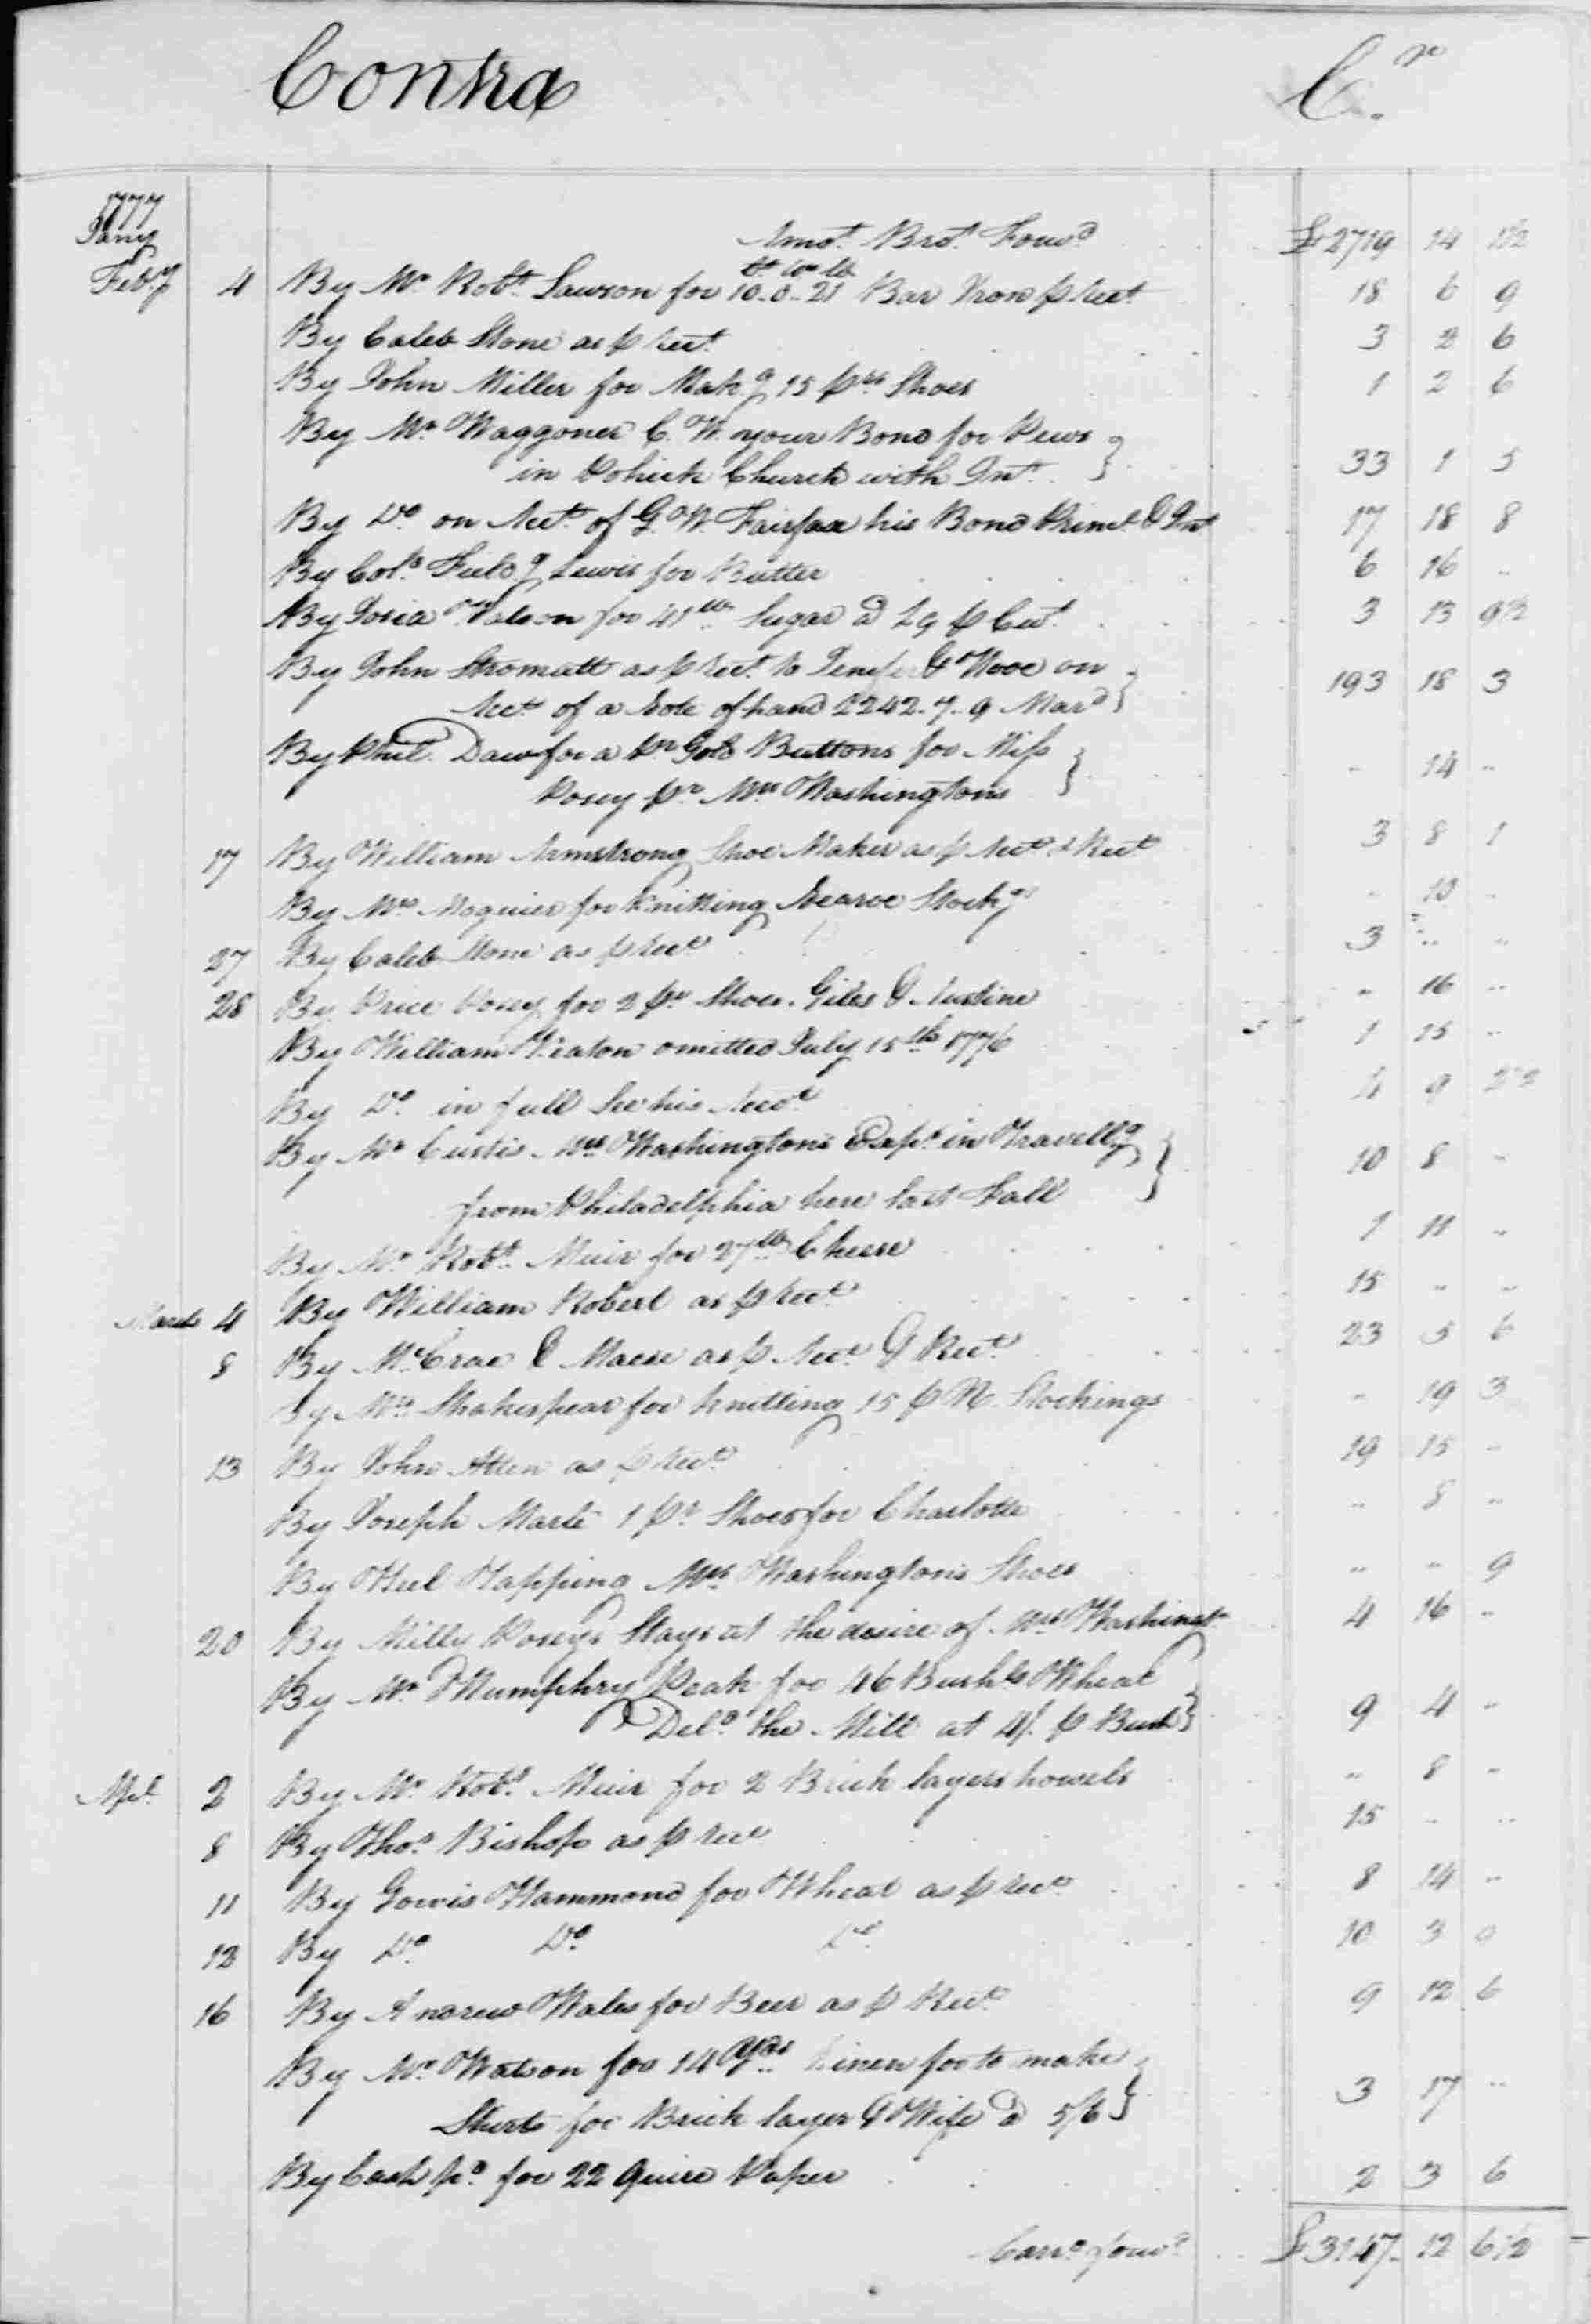 Contra Cr.
1777
Jany Amot. Brot. Forwd £2719 14 1 1/2
Ct. Qr. lb
Feby 4 By Mr. Robt. Lawson for 10.0.21 Bar Iron p Rect. 18 6 9
By Caleb Stone as p Rect. 3 2 6
By John Miller for Makg. 15 prs Shoes 1 2 6
By Mr. Waggoner C. W. your Bond for Pews
in Pohick Church with Int. 33 1 5
By Do. on Acct. of G. W. Fairfax his Bond Prinl. & Int 17 18 8
By Colo. Fieldg Lewis for Butter 6 16 ..
By Josia Watson for 41 lb Sugar @ p Cwt. 3 13 9 1/2
By John Stromatt as p Rect. to Jenifer & Hooe on
Acct. of a Note of hand £242.7.9 Mard 193 18 3
By Phil. Daw for a pr Gold Buttons for Miss
Posey pr. Mrs Washingtons - 14 ..
17 By William Armstrong Shoe Maker as p Acct. & Rect. 3 8 1
By Mrs. Maguier for Knitting Nearoe Stockgs - 10 ..
27 By Caleb Stone as p Rect. 3 .. ..
28 By Price Posey for 2 pr Shoes. Giles & Austine .. 16 ..
By William Keaton omitted July 15th 1776 1 15 ..
By Do. in full See his Acct. 4 9
By Mr Custis Mrs Washingtons Exps. in Travellg
from Philadelphia here last Fall 10 8 ..
By Mr. Robt. Muir for 27 lb Cheese 1 11 ..
March 4 By William Robert as p Rect. 15 .. ..
8 By McCrae & Maese as p Acct. & Rect. 23 5 6
By Mrs. Shakespear for knitting 15 p N. Stockings - 19 3
13 By John Allen as p Rect. 19 15 ..
By Joseph Marle 1 pr. Shoes for Charlotte .. 8 ..
By Heel Tapping Mrs. Washingtons Shoes .. .. 9
20 By Milly Posey's Stays at the desire of Mrs Washingt. 4 16 ..
By Mr Humphry Peak for 46 Bushls Wheat
Deld. the Mill at 4/. p Bush 9 4 ..
Apl. 2 By Mr. Robt. Muir for 2 Brick layers howels .. 8 ..
8 By Thos. Bishop as p Rect 15 .. ..
11 By Gowis Hammond for Wheat as p Rect. 8 14 ..
12 By Do. Do. Do. 10 3 0
16 By Andrew Wales for Beer as p Rect. 9 12 6
By Mr. Watson for 14 Yds. Linen for to make
Shirts for Brick layer & Wife @ 5/6 3 17 ..
By Cash pd. for 22 Quire Paper 2 3 6
Carrd. forwd. £3147 12 6 1/2